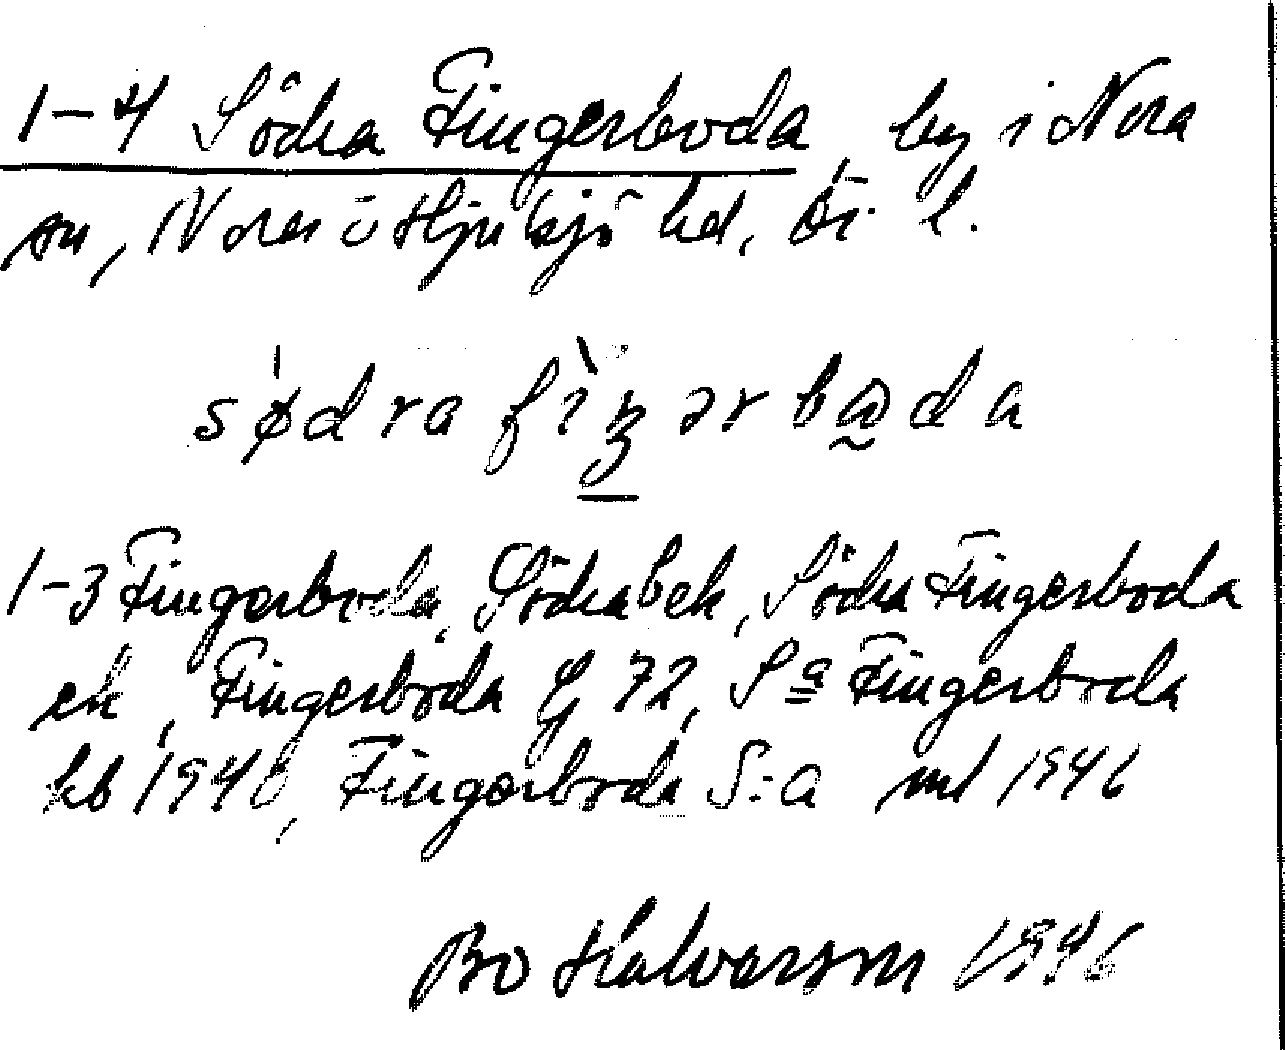 1-4 Södra Fingerboda, by i Nora
sn, Nora o Hjulsjö hd, Ör. l.
södra fìŋərbɷda
1-3 Fingerboda, Södra bek, Södra Fingerboda
ek, Fingerboda G 72, S:a Fingerboda
kb 1940, Fingerboda S:a ml 1946
Bo Halvarson 1946